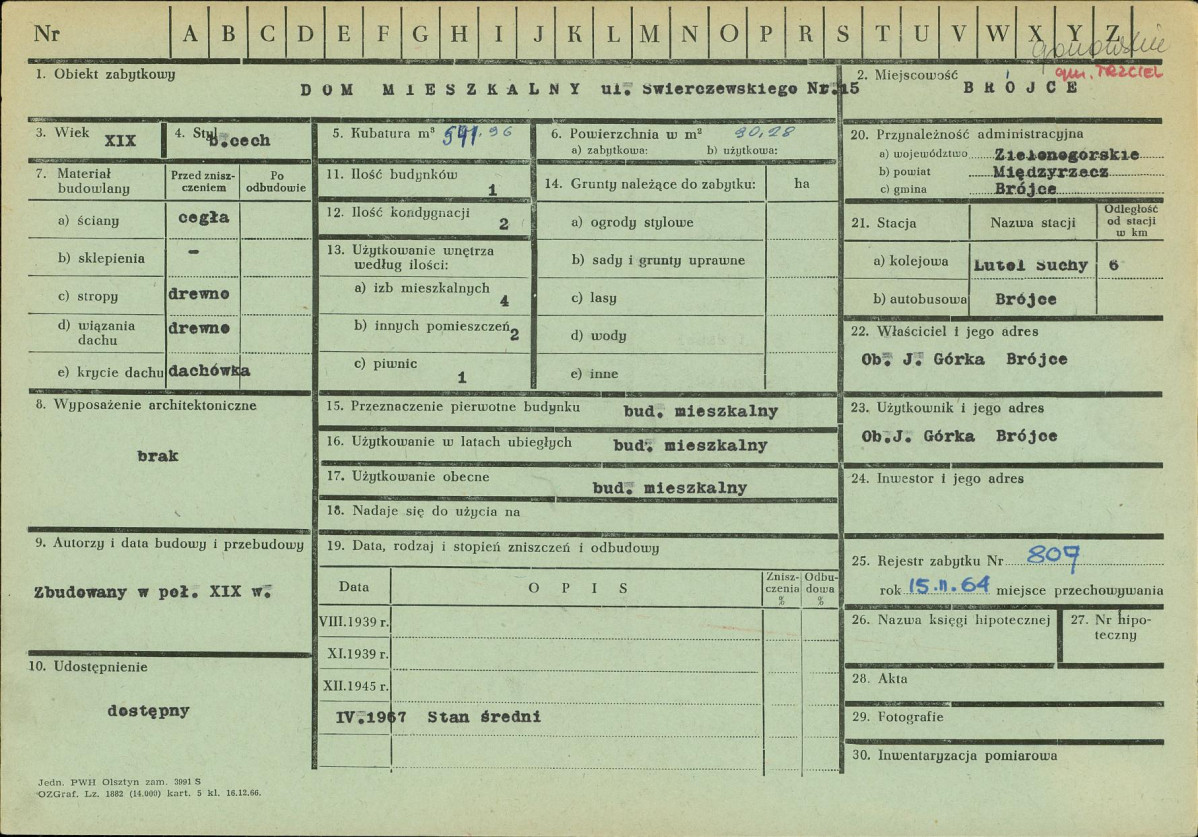 Nr A B C D E F G H I J K L M N O P R S T U V W X Y Z
gm. TRZCIEL
1. Obiekt zabytkowy
DOM MIESZKALNY ul. Świerczewskiego Nr.15
2. Miejscowość
BRÓJCE
3. Wiek
XIX
4. Styl
b.cech
5. Kubatura m³ 541.96
6. Powierzchnia w m² 90,28
a) zabytkowa: b) użytkowa:
7. Materiał budowlany
Przed znisz-
czeniem
Po
odbudowie
a) ściany cegła
b) sklepienia -
c) stropy drewno
d) wiązania
dachu drewno
e) krycie dachu dachówka
8. Wyposażenie architektoniczne
brak
9. Autorzy i data budowy i przebudowy
Zbudowany w poł. XIX w.
10. Udostępnienie
dostępny
11. Ilość budynków
1
12. Ilość kondygnacji
2
13. Użytkowanie wnętrza
według ilości:
a) izb mieszkalnych
4
b) innych pomieszczeń
2
c) piwnic
1
14. Grunty należące do zabytku: ha
a) ogrody stylowe
b) sady i grunty uprawne
c) lasy
d) wody
e) inne
15. Przeznaczenie pierwotne budynku bud. mieszkalny
16. Użytkowanie w latach ubiegłych bud. mieszkalny
17. Użytkowanie obecne
bud. mieszkalny
18. Nadaje się do użycia na
19. Data, rodzaj i stopień zniszczeń i odbudowy
Data OPIS
Znisz-
czenia
%
Odbu-
dowa
%
VIII.1939 r.
XI.1939 r.
XII.1945 r.
IV.1967 Stan średni
20. Przynależność administracyjna
a) województwo Zielonogorskie
b) powiat Międzyrzecz
c) gmina Brójce
21. Stacja Nazwa stacji
Odległość
od stacji
w km
a) kolejowa Lutol Suchy 6
b) autobusowa Brójce
22. Właściciel i jego adres
Ob. J. Górka Brójce
23. Użytkownik i jego adres
Ob.J. Górka Brójce
24. Inwestor i jego adres
25. Rejestr zabytku Nr 807
rok 15.II.64 miejsce przechowywania
26. Nazwa księgi hipotecznej
27. Nr hipo-
teczny
28. Akta
29. Fotografie
30. Inwentaryzacja pomiarowa
Jedn. PWH Olsztyn zam. 3991 S
OZGraf. Lz. 1882 (14.000) kart. 5 kl. 16.12.66.